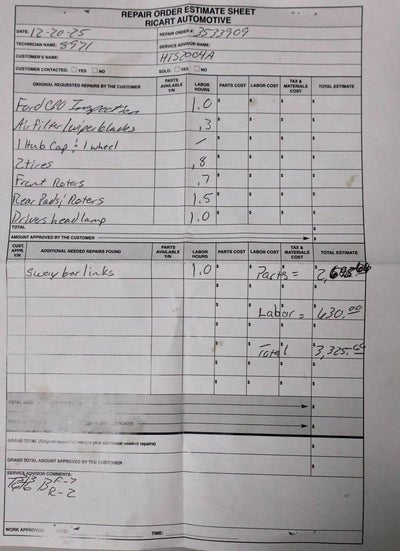 REPAIR ORDER ESTIMATE SHEET
RICART AUTOMOTIVE
DATE: 12-20-25 REPAIR ORDER #: 3533909
TECHNICIAN NAME: 8971 SERVICE ADVISOR NAME:
CUSTOMER'S NAME: HTS7004A
CUSTOMER CONTACTED: YES NO SOLD: YES NO
ORIGINAL REQUESTED REPAIRS BY THE CUSTOMER PARTS AVAILABLE Y/N LABOR HOURS PARTS COST LABOR COST TAX & MATERIALS COST TOTAL ESTIMATE
Ford CPO Inspection 1.0 $ $ $ $
Air filter/wiper blades .3 $ $ $ $
1 Hub Cap : 1 wheel / $ $ $ $
2 tires .8 $ $ $ $
Front Roters .7 $ $ $ $
Rear Pads/Roters 1.5 $ $ $ $
Drivers headlamp 1.0 $ $ $ $
TOTAL $
AMOUNT APPROVED BY THE CUSTOMER $
CUST. APPR. Y/N ADDITIONAL NEEDED REPAIRS FOUND PARTS AVAILABLE Y/N LABOR HOURS PARTS COST LABOR COST TAX & MATERIALS COST TOTAL ESTIMATE
sway bar links 1.0 $ Parts =
Labor = 630.00
Total 3,325.00
TOTAL
GRAND TOTAL (Original repairs plus additional needed repairs) $
GRAND TOTAL AMOUNT APPROVED BY THE CUSTOMER $
SERVICE ADVISOR COMMENTS:
B F-7
R-2
WORK APPROVED TIME: